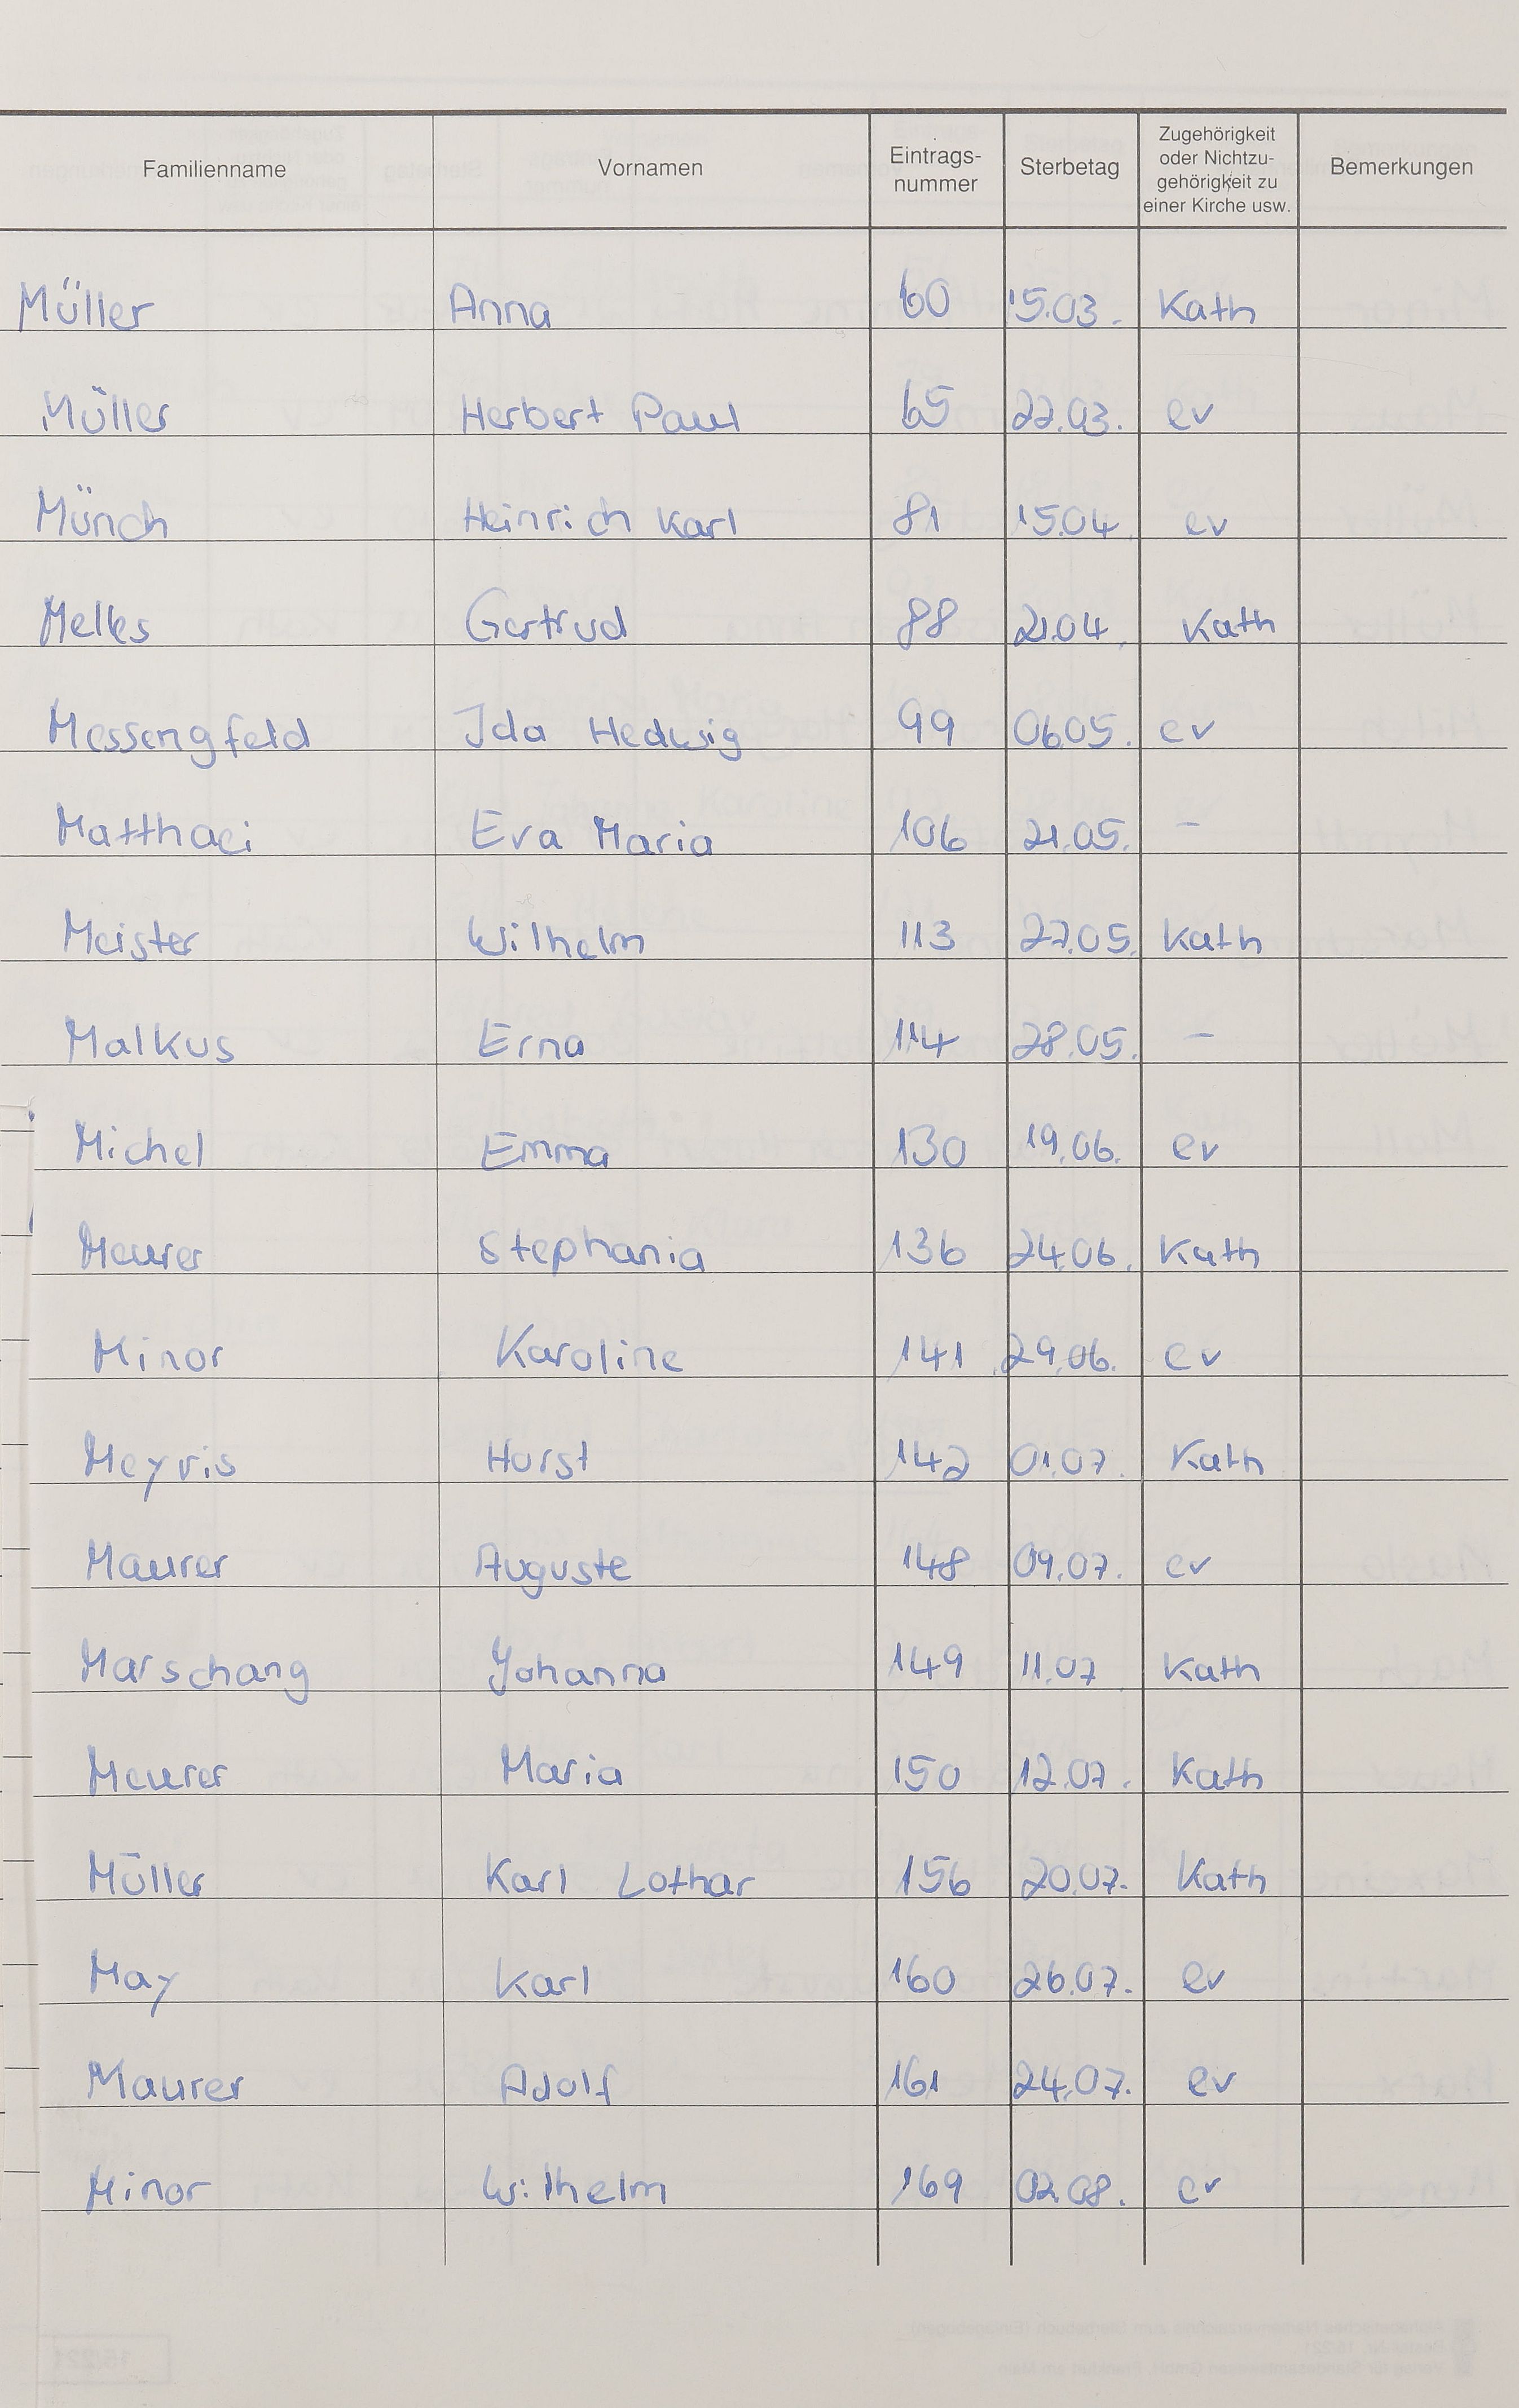 Familienname Vornamen Eintrags-nummer Sterbetag Zugehörigkeit oder Nichtzu-gehörigkeit zu einer Kirche usw. Bemerkungen
Müller Anna 60 15.03. Kath
Müller Herbert Paul 65 22.03. ev
Münch Heinrich Karl 81 15.04. ev
Melles Gertrud 88 21.04. Kath
Messengfeld Ida Hedwig 99 06.05. ev
Matthaei Eva Maria 106 21.05. –
Meister Wilhelm 113 27.05. Kath
Malkus Erna 114 28.05. –
Michel Emma 130 19.06. ev
Meurer Stephania 136 24.06. Kath
Minor Karoline 141 29.06. ev
Meyvis Horst 142 01.07. Kath
Maurer Auguste 148 09.07. ev
Marschang Johanna 149 11.07 Kath
Meurer Maria 150 12.07. Kath
Müller Karl Lothar 156 20.07. Kath
May Karl 160 26.07. ev
Maurer Adolf 161 24.07. ev
Minor Wilhelm 169 02.08. ev